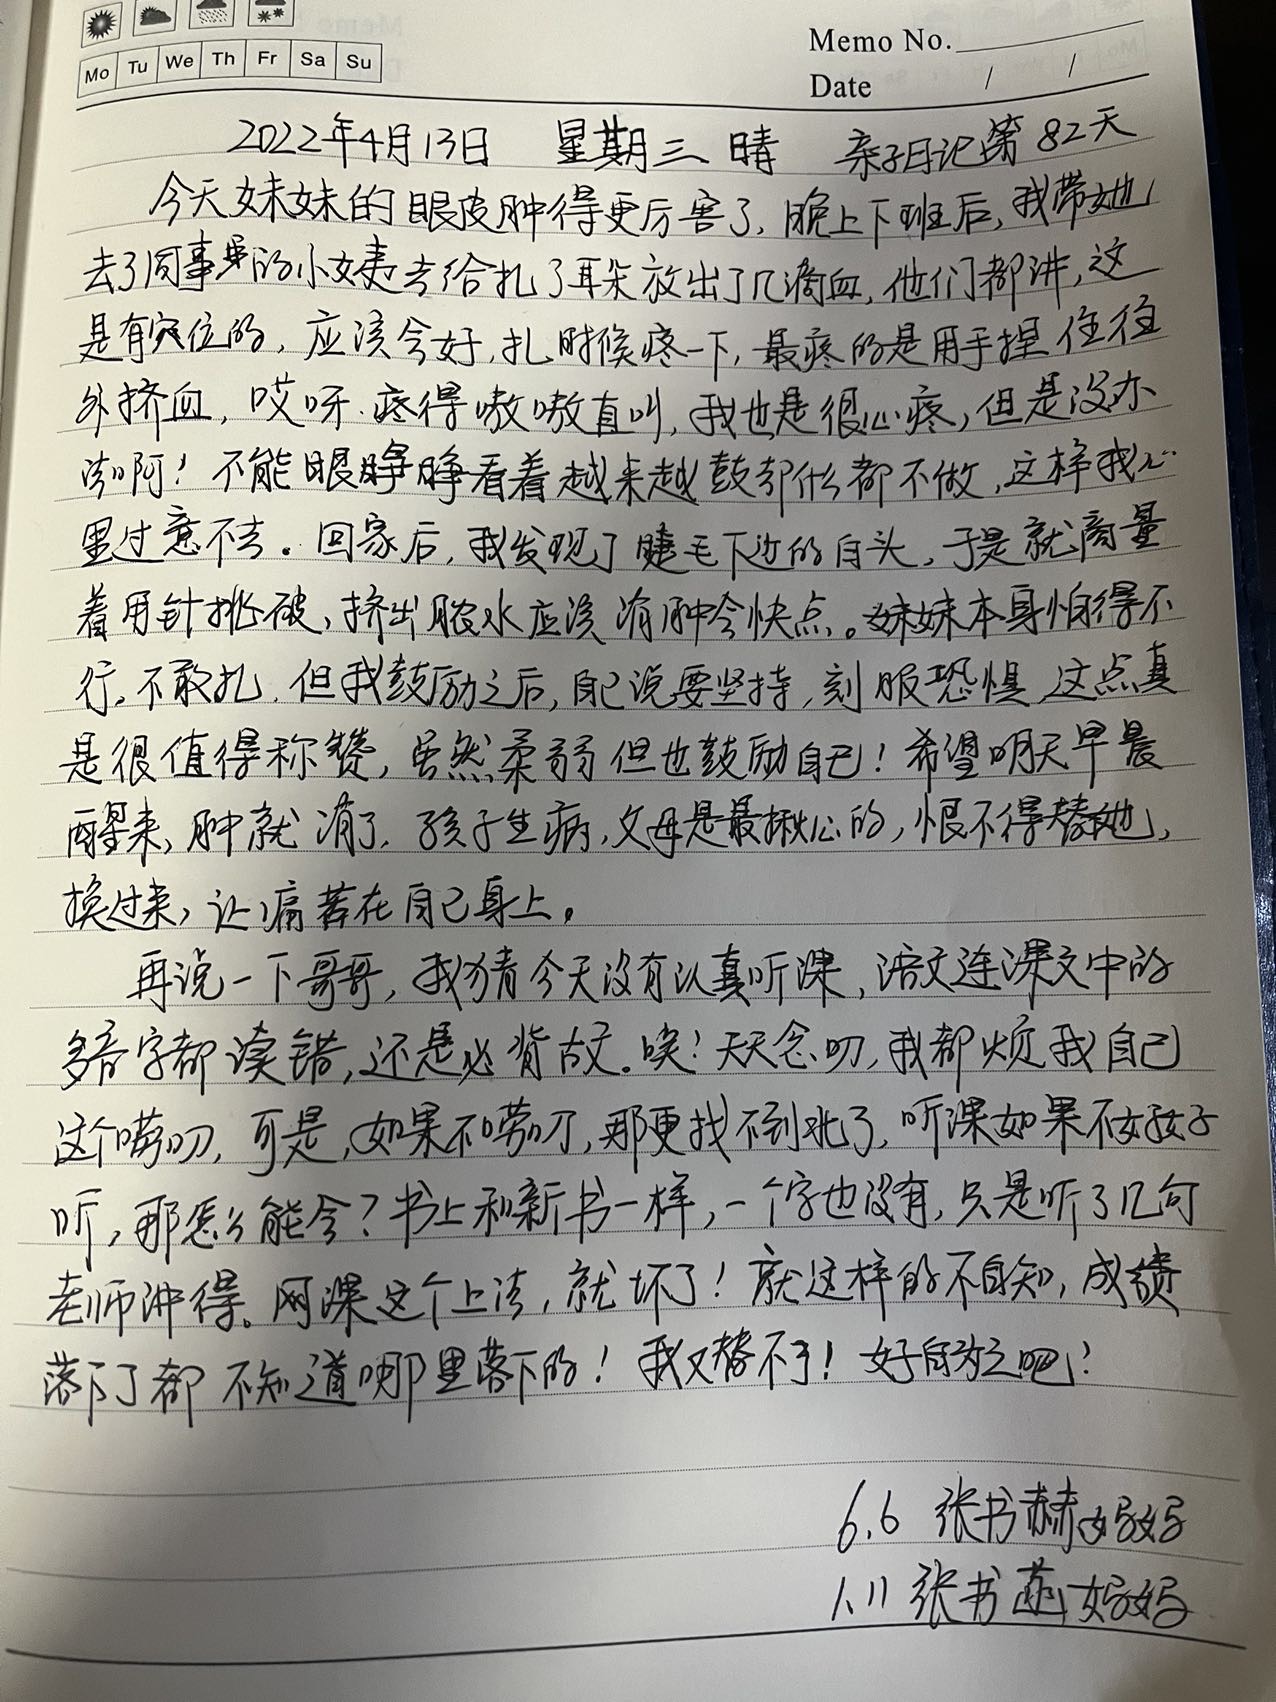 Mo Tu We Th Fr Sa Su
Memo No.
Date / /
2022年4月13日 星期三 晴 亲子日记第82天
今天妹妹的眼皮肿得更厉害了,晚上下班后,我带她
去了同事的小姨去给扎了耳朵放出了几滴血,他们都讲,这
是有穴位的,应该会好,扎时候疼一下,最疼的是用手捏住往
外挤血,哎呀.疼得嗷嗷直叫,我也是很心疼,但是没办
法啊!不能眼睁睁看着越来越鼓却什么都不做,这样我心
里过意不去。回家后,我发现了睫毛下边的白头,于是就商量
着用针挑破,挤出脓水应该消肿会快点。妹妹本身怕得不
行,不敢扎,但我鼓励之后,自己说要坚持,刻服恐惧,这点真
是很值得称赞,虽然柔弱但也鼓励自己!希望明天早晨
醒来,肿就消了,孩子生病,父母是最揪心的,恨不得替她,
换过来,让痛苦在自己身上。
再说一下哥哥,我猜今天没有认真听课,语文连课文中的
多音字都读错,还是必背古文.唉!天天念叨,我都烦我自己
这个唠叨,可是,如果不唠叨,那更找不到北了,听课如果不好好
听,那怎么能会?书上和新书一样,一个字也没有,只是听了几句
老师讲得。网课这个上法,就坏了!就这样的不自知,成绩
落下了都不知道哪里落下的!我又替不了!好自为之吧!
6.6 张书赫妈妈
1.11 张书菡妈妈